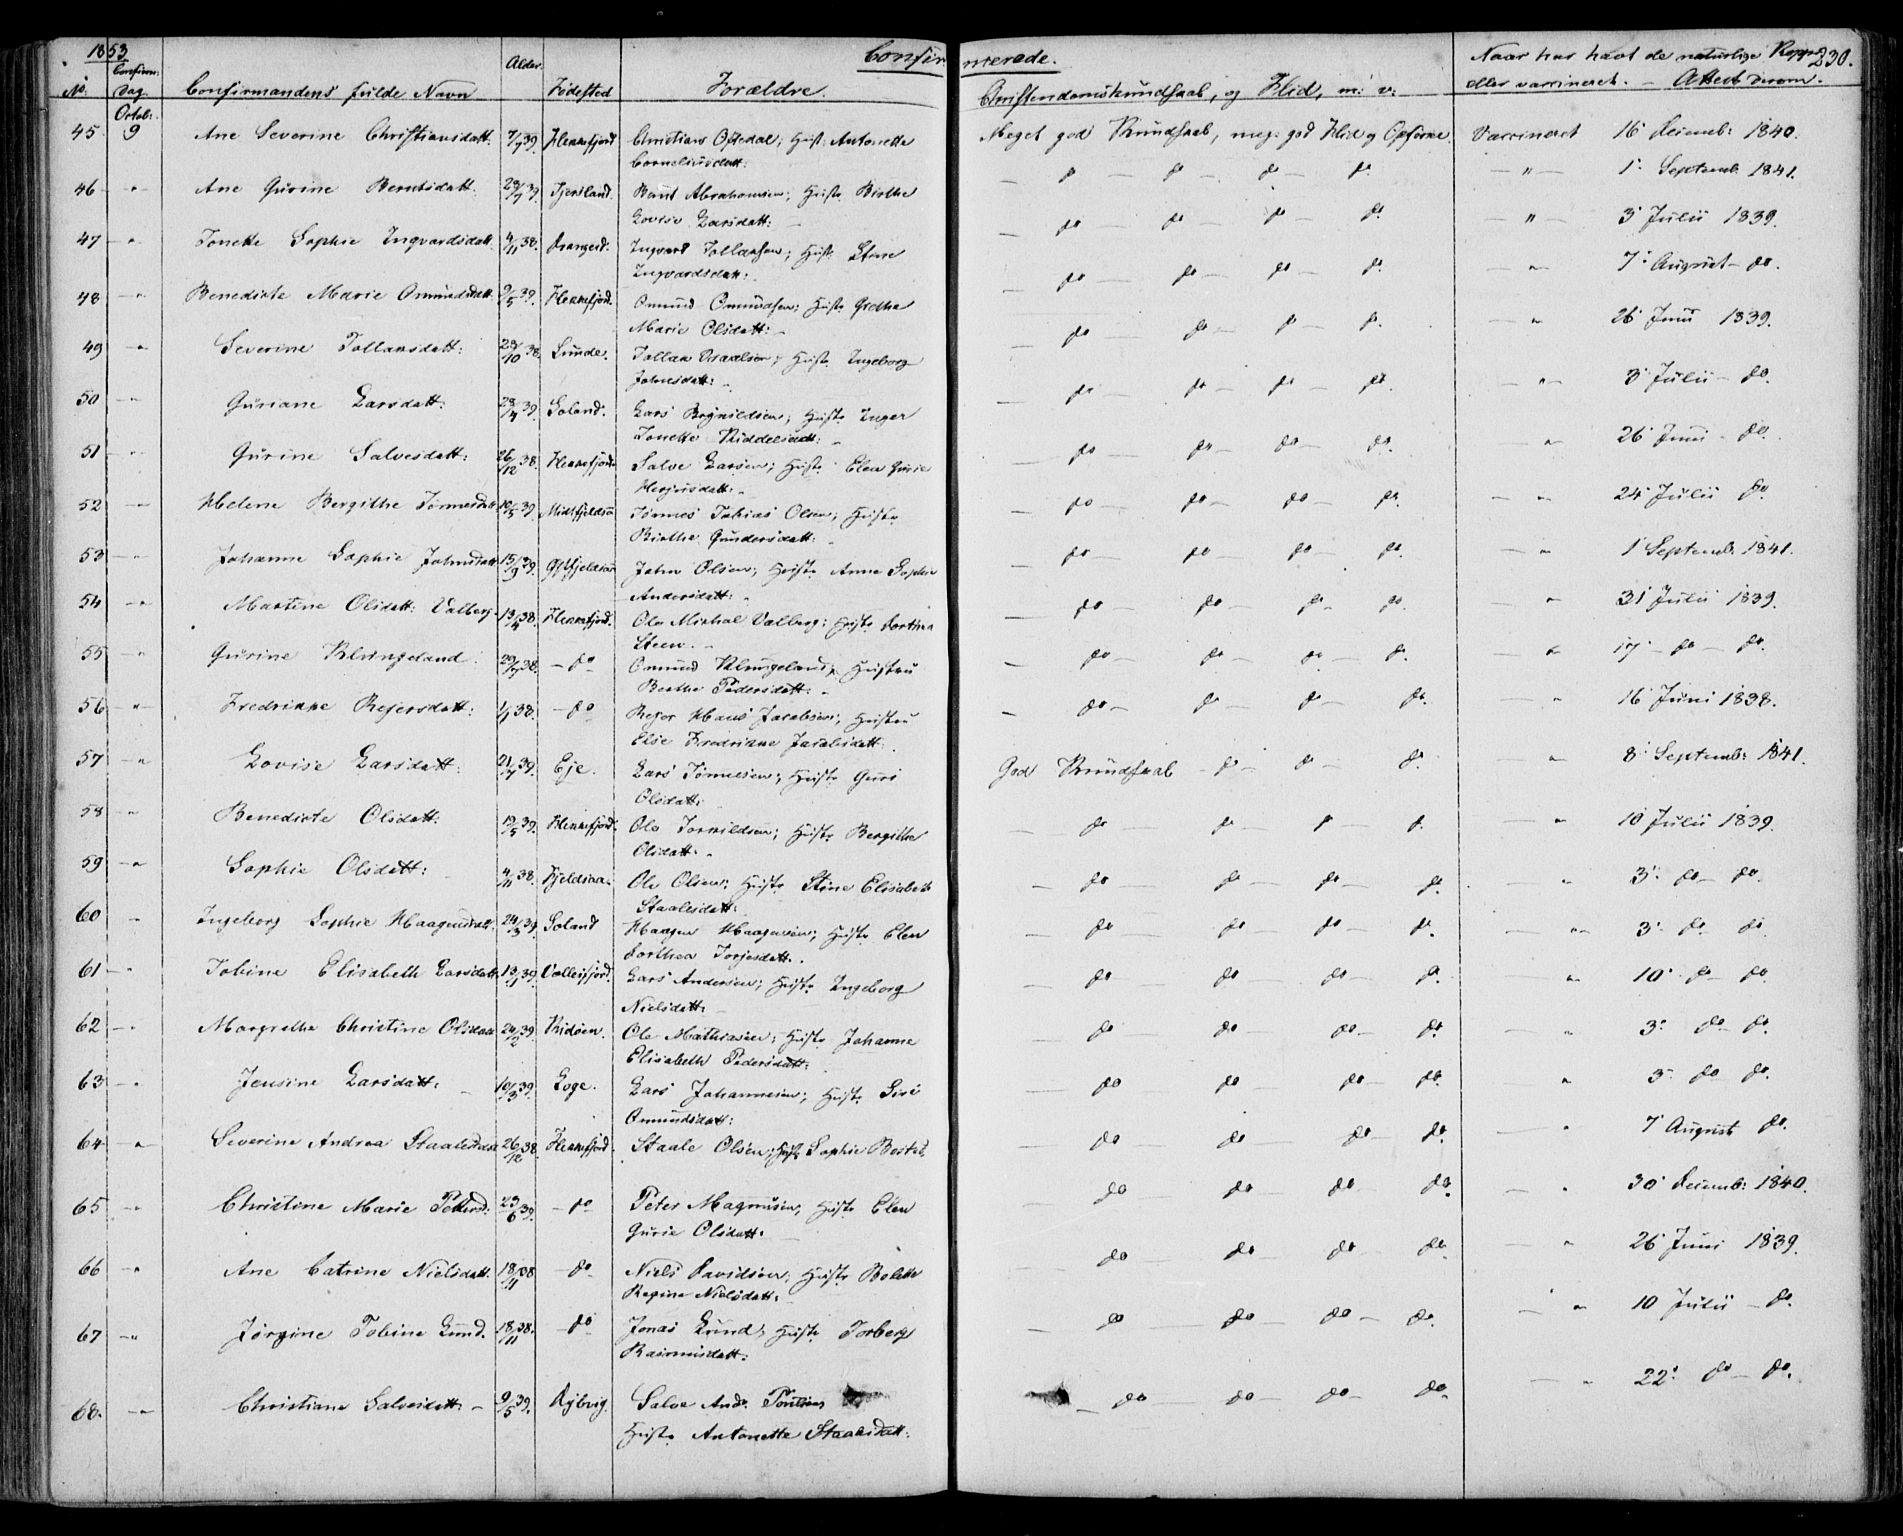 1853
Confirmerede.
230.
No. Confirm: Dag Confirmandens fulde Navn Alder. Fødested Forældre. Christendomskundskab, og Flid, m: v: Naar har havt de naturlige Kopper eller vaccineret. – Attest derom.
Octob:
45 9 Ane Severine Christiansdatt. 7/7 39. Flekkefjord Christian Opsedal; Hust: Antonette Meget god Kundskab, meg: god Flid og Opførsel Vaccineret 16 Decemb: 1840.
Corneliusdatt:
46 -"- Ane Gurine Berntsdatt. 29/7 39. Fjersland. Bernt Abrahamsen; Hustr. Birthe — do — do — do — do. — " — 1. Septemb: 1841.
Lovise Larsdatt:
47 — " Tonette Sophie Ingvardsdatt. 4/11 38. Drangeid. Ingvard Tollaksen; Hustr. Stine — do do — do — do. — " 3 Julii 1839.
Ingvardsdatt:
48 — " Benedicte Marie Omundsdatt. 9/5 39. Flekkefjord. Omund Omundsen; Hustr. Grethe — do do — do — do. — " — 7 August – do.
Marie Olsdatt:
49 — " Severine Tollaksdatt: 29/10 38. Lunde. Tollak Osvaldsen; Hustr. Ingeborg — do do — do — do. — " 26 Juni 1839.
Johnsdatt:
50 — " Guriane Larsdatt: 28/4 39. Soland. Lars Regnildsen; Hustr. Inger — do do — do — do. — " — 3 Julii – do.
Tonette Kiddelsdatt:
51 — " Gurine Salvesdatt: 26/12 38. Flekkefjord Salve Larsen; Hustr. Elen Gurie — do — do — do — do. " 26 Juni – do.
Herjusdatt:
52 — " Helene Bergithe Tønnesdatt 10/5 39. Midtfjeldsaa Tønnes Tobias Olsen; Hustr. — do — do — do — do. — " 24 Julii do
Birthe Gundersdatt:
53 — " Johanne Sophie Johnsdatt 15/9 39. John Olsen; Hustr. Anne Sophie — do — do — do — do. — " 1 Septemb: 1841.
Andersdatt:
54 — " Martine Olsdatt: Valberg 13/4 38. Flekkefjord. Ole Michal Valberg; Hustr. Dorthea — do — do — do — do. — " 31 Julii 1839.
Steen.
55 — " Gurine Klungeland. 29/7 38. – do Omund Klungeland; Hustru — do — do — do — do. — " 17 – do – do.
Berthe Pedersdatt:
56 — " Fredrikke Rejersdatt: 1/1 38. – do Rejer Hans Jacobsen; Hustru — do — do — do — do. — " 16 Juni 1838.
Else Fredrikke Jacobsdatt:
57 — " Lovise Larsdatt: 21/7 39. Eje. Lars Tønnesen; Hustr. Guri God Kundskab – do — do — do. — " 8 Septemb: 1841.
Olsdatt:
58 — " Benedicte Olsdatt: 19/5 39. Flekkefjord. Ole Torkildsen; Hustr. Bergitha — do do — do — do. — " 10 Julii 1839.
Olsdatt:
59 — " Sophie Olsdatt: 4/11 38. Fjeldsaa. Ole Olsen; Hustr. Stine Elisabeth — do do — do — do. " 3 do – do.
Staalesdatt:
60 — " Ingeborg Sophie Haagensdatt. 24/3 39. Soland Haagen Haagensen; Hustr. Elen — do — do — do — do. " 3 do – do.
Dorthea Torjesdatt.
61 — " Tobine Elisabeth Larsdatt. 13/1 39. Vollesfjord. Lars Andersen; Hustr. Ingeborg — do do — do — do. " 10 do – do.
Nielsdatt:
62 — " Margrethe Christine Olsdatt 24/2 39. Kidøen. Ole Mathiasen; Hustr. Johanne — do do — do — do. " 3 do – do.
Elisabeth Pedersdatt:
63 — " Jensine Larsdatt: 10/3 39. Loge. Lars Johannesen; Hustr. Siri — do do — do — do. " 3 do do.
Omundsdatt:
64 — " Severine Andrea Staalesdatt 26/12 38. Flekkefjord. Staale Olsen; Hustr. Sophie — do do do — do. — " 7 August do.
65 — " Christine Marie Petersd. 23/6 39. – do Peter Magnusen; Hustr. Elen — do do — do — do. — " 30 Decemb: 1840.
Gurie Olsdatt:
66 — " Ane Catrine Nielsdatt. 18/11 38 – do Niels Davidsen; Hustr. Bolette — do do — do — do. — " 26 Juni 1839.
Regine Nielsdatt:
67 — " Jørgine Tobine Lund. 18/11 38. – do Jonas Lund; Hustr. Torberg — do do — do — do. — " 10 Julii – do.
Rasmusdatt:
68. — " Christiane Salvesdatt: – 9/5 39. Rybvig. Salve Andr. Poulsen — do do — do — do. — " 22 do – do.
Hustr. Antonette Staalesdatt: